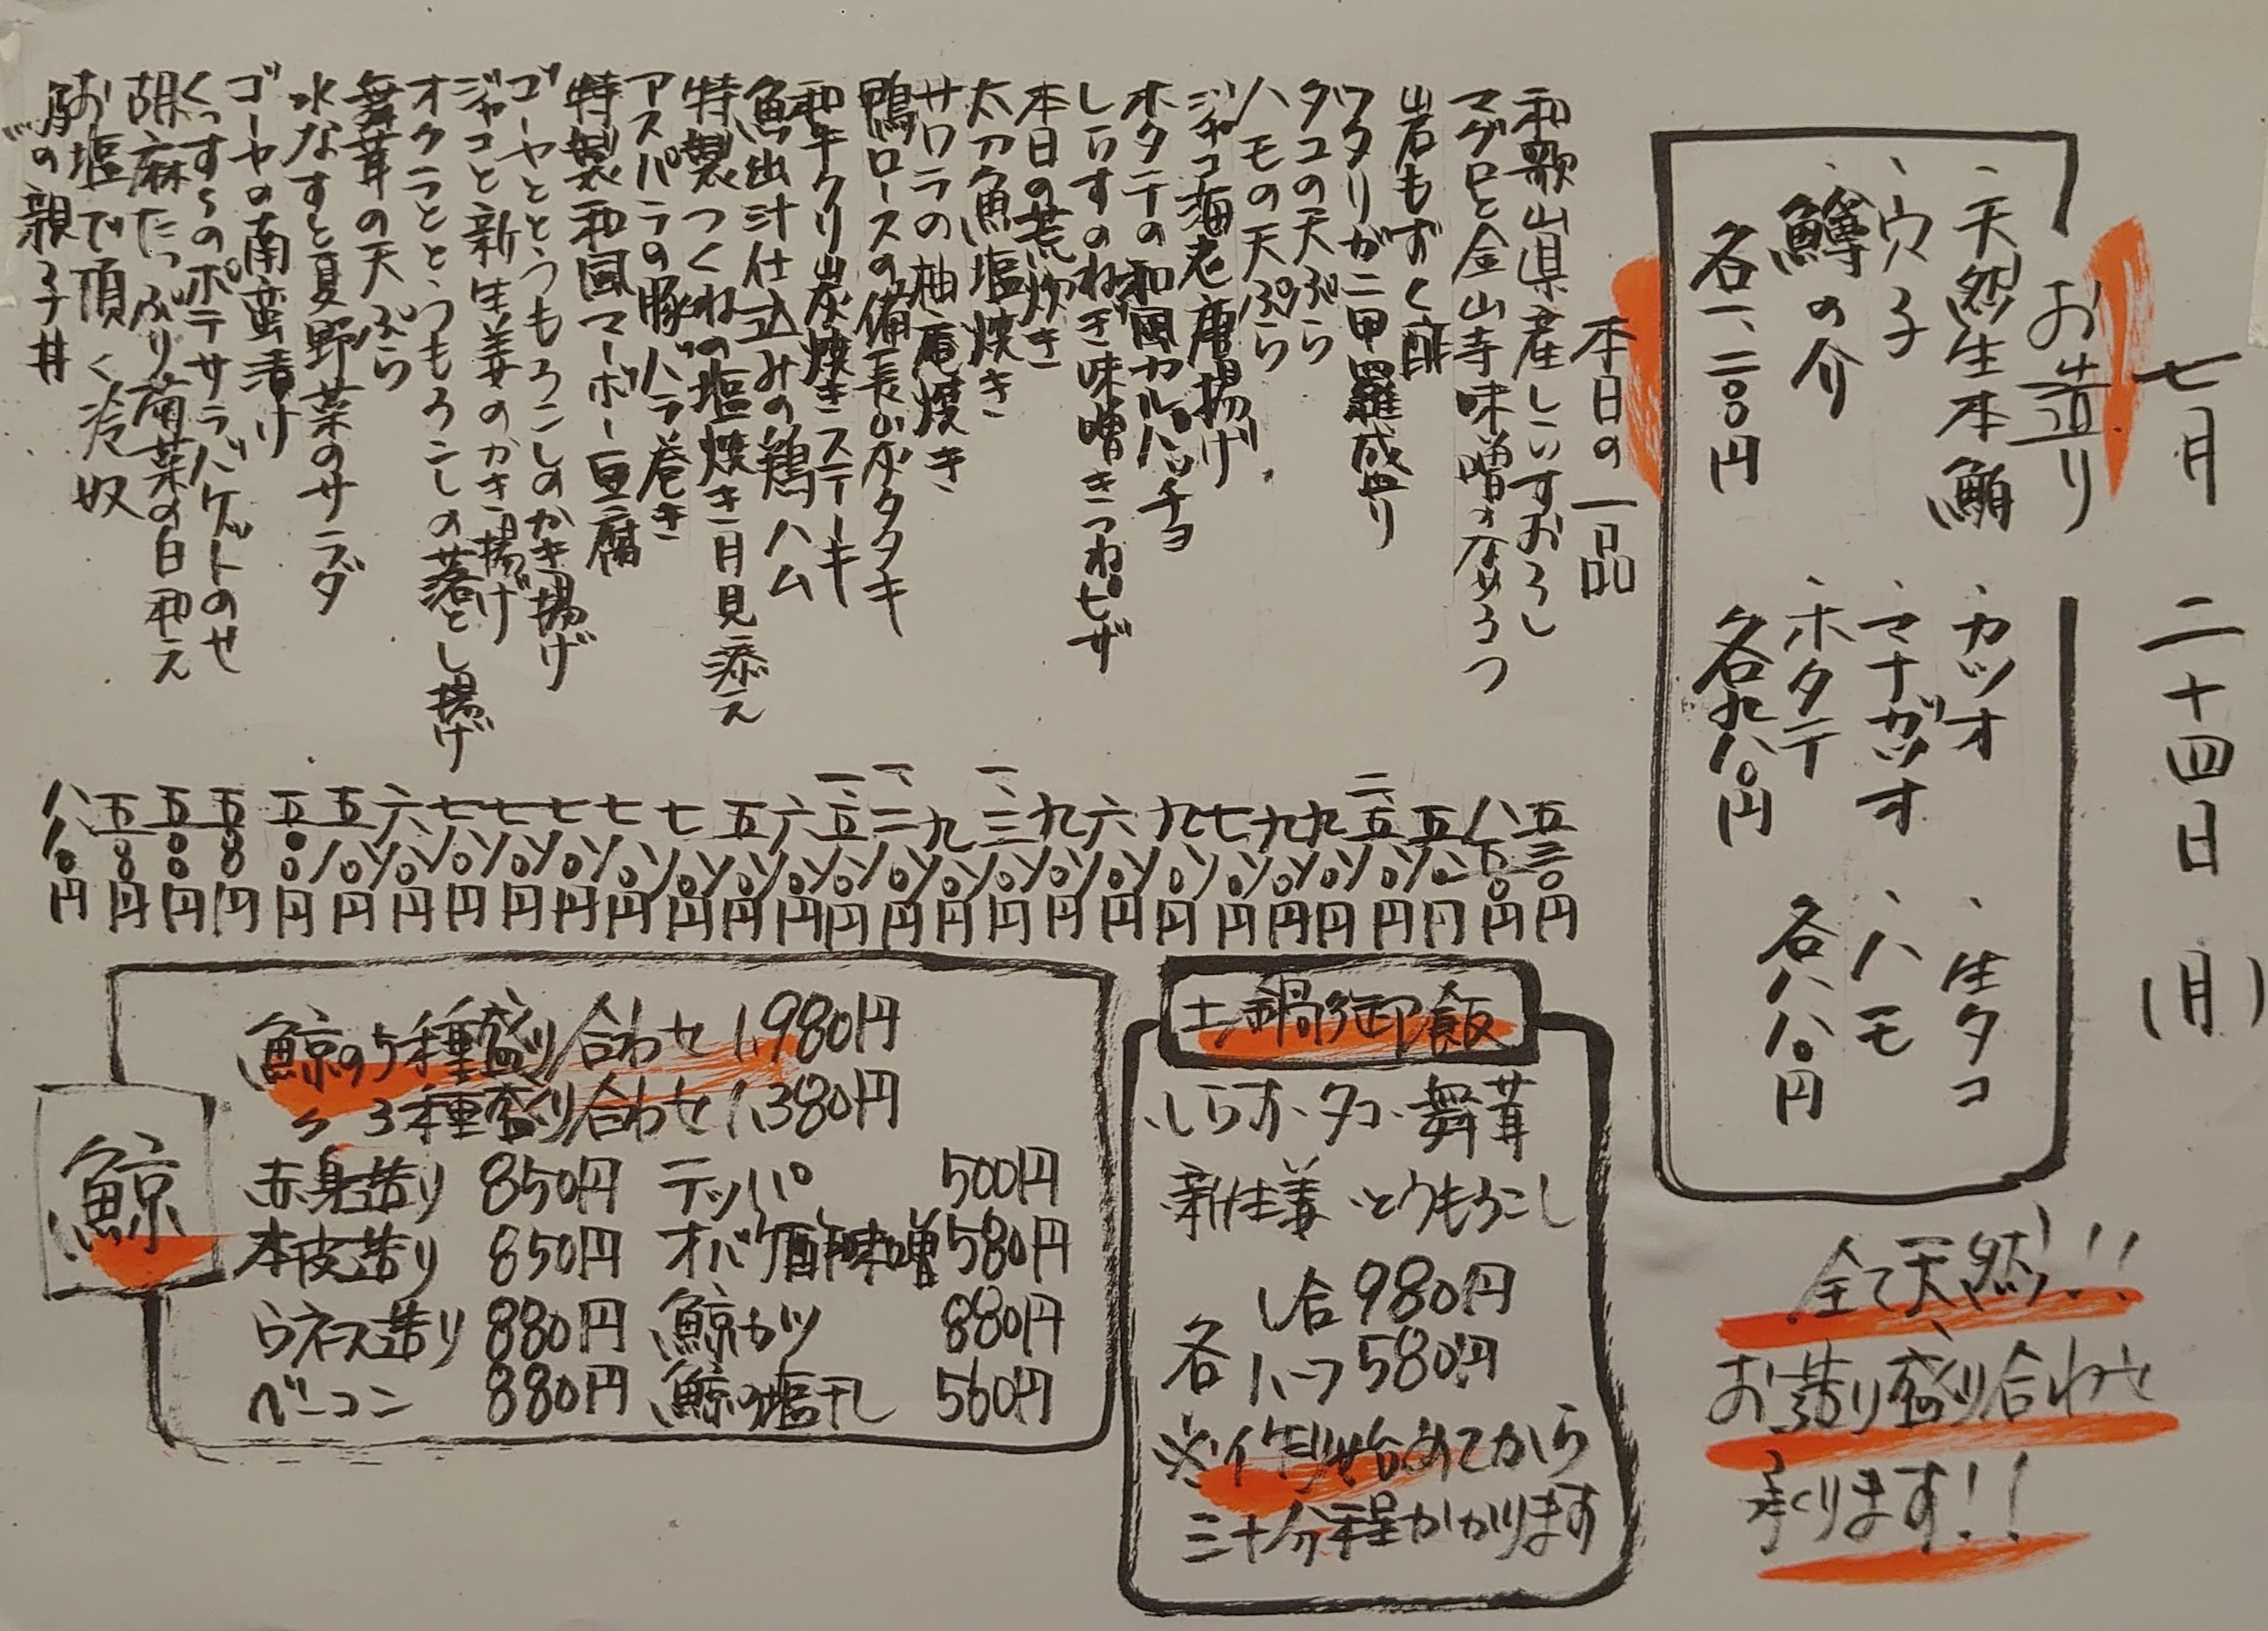 七月 二十四日 (月)
お造り
、天然生本鮪
、穴子
、鱒の介
各一、二〇〇円
、カツオ
、マナガツオ
、ホタテ
各九八〇円
、生タコ
、ハモ
各八八〇円
全て天然!!
お造り盛り合わせ
承ります!!
本日の一品
和歌山県産しらすおろし 五三〇円
マグロと金山寺味噌のなめろう 八五〇円
岩もずく酢 五八〇円
ワタリガニ甲羅盛り 二、五八〇円
タコの天ぷら 九八〇円
ハモの天ぷら 九八〇円
ジャコ海老唐揚げ 七八〇円
ホタテの和風カルパッチョ 九八〇円
しらすのねぎ味噌きつねピザ 六八〇円
本日の荒炊き 九八〇円
太刀魚塩焼き 一、三八〇円
サワラの柚庵焼き 九八〇円
鴨ロースの備長炭タタキ 一、二八〇円
和牛クリ炭焼きステーキ 一、五八〇円
魚出汁仕込みの鶏ハム 六八〇円
特製つくねの塩焼き 月見添え 五八〇円
アスパラの豚バラ巻き 七八〇円
特製和風マーボー豆腐 七八〇円
ゴーヤととうもろこしのかき揚げ 七八〇円
ジャコと新生姜のかき揚げ 七八〇円
オクラととうもろこしの落とし揚げ 七八〇円
舞茸の天ぷら 六八〇円
水なすと夏野菜のサラダ 五八〇円
ゴーヤの南蛮漬け 五〇〇円
くっすらのポテサラバゲットのせ 五八〇円
胡麻たっぷり菊菜の白和え 五〇〇円
お塩で頂く冷奴 五〇〇円
豚の親子丼 八八〇円
土鍋御飯
、しらす、タコ、舞茸
、新生姜、とうもろこし
各 一合 980円
ハーフ 580円
※作り始めてから
三十分程かかります
鯨
鯨の5種盛り合わせ 1,980円
〃 3種盛り合わせ 1,380円
赤身造り 850円 テッパ 500円
本皮造り 850円 オバケ酢味噌 580円
ウネス造り 880円 鯨カツ 880円
ベーコン 880円 鯨の塩干し 560円